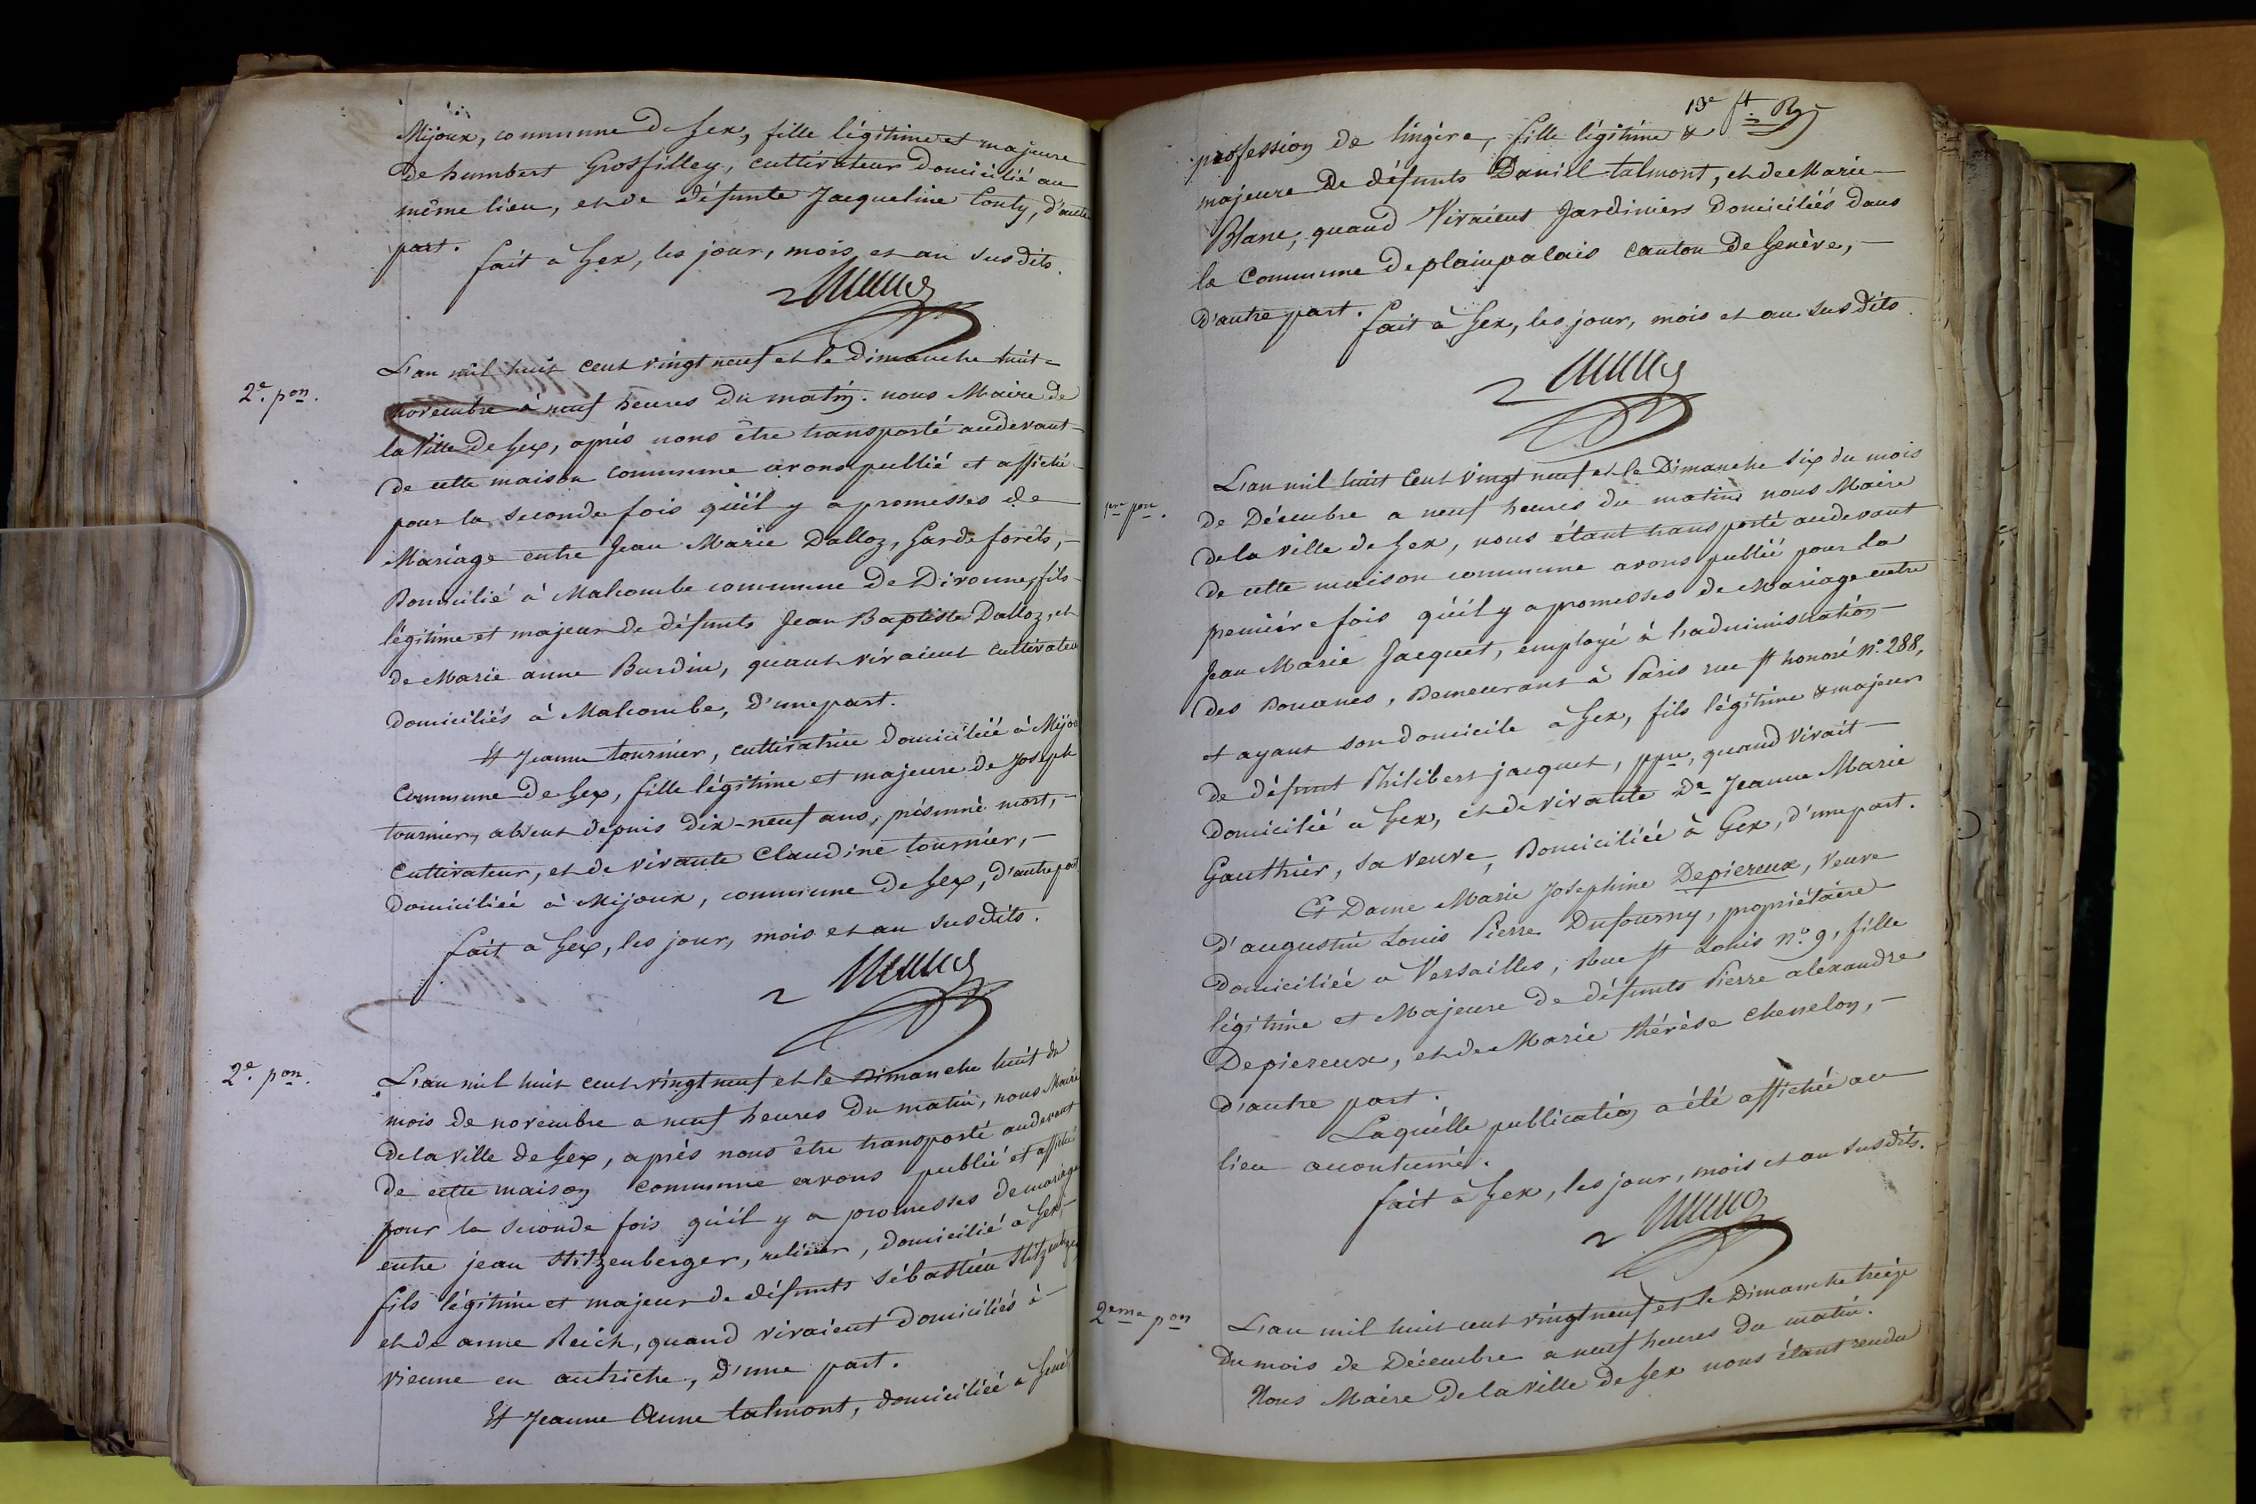 Mijoux, commune de Gex, fille légitime et majeure
de humbert Grosfilley, cultivateur domicilié au
même lieu, et de défunte Jacqueline Conty, d'autre
part.
fait à Gex, les jour, mois et an susdits.
2e. pon.
L'an mil huit cent vingt neuf et le dimanche huit
novembre à neuf heures du matin. nous Maire de
la Ville de Gex, après nous être transporté audevant
de cette maison commune avons publié et affiché
pour la seconde fois qu'il y a promesses de
Mariage entre Jean Marie Dalloz, Garde forêts,
Domicilié à Malcombe commune de Divonne, fils
légitime et majeur de défunts Jean Baptiste Dalloz, et
de Marie anne Burdin, quant vivaient cultivateurs
domiciliés à Malcombe, d'une part.
Et Jeanne tournier, cultivatrice domiciliée à Mijoux
Commune de Gex, fille légitime et majeure de Joseph
tournier, absent depuis dix-neuf ans, présumé mort,
Cultivateur, et de vivante Claudine tournier,
domiciliée à Mijoux, commune de Gex, d'autre part
fait à Gex, les jour, mois et an susdits.
2e. pon.
L'an mil huit cent vingt neuf et le Dimanche huit du
mois de novembre a neuf heures du matin, nous Maire
De la ville de Gex, après nous être transporté audevant
de cette maison commune avons publié et affiché
pour la seconde fois qu'il y a promesses de mariage
entre jean Stitzenberger, relieur, domicilié à Gex,
fils légitime et majeur de défunts sébastien Stitzenberger
et de anne Reich, quand vivaient domiciliés à
vienne en autriche, d'une part.
Et Jeanne Anne talmont, domiciliée a Genève
13e ft.
profession de lingère, fille légitime &
majeure De défunts Daniel talmont, et de Marie
Blanc, quand Vivaient Jardiniers Domiciliés dans
la Commune de plainpalais canton de Genève,
d'autre part.
fait à Gex, les jour, mois et an susdits.
1ere pon.
L'an mil huit Cent vingt neuf et le Dimanche six du mois
de Décembre a neuf heures du matin nous Maire
de la ville de Gex, nous étant transporté audevant
de cette maison commune avons publié pour la
première fois qu'il y a promesses de Mariage entre
Jean Marie Jacquet, employé à l'administration
des Douanes, Demeurant à Paris rue St honoré No. 288,
et ayant son domicile a Gex, fils légitime & majeur
de défunt Philibert jacquet, ppre, quand vivait
Domicilié a Gex, et de vivante De Jeanne Marie
Gauthier, sa veuve, Domiciliée à Gex, d'une part.
Et Dame Marie Josephine Depiereux, Veuve
d'augustin Louis Pierre Dufourny, propriétaire
Domiciliée a Versailles, Rue St Louis no. 9, fille
légitime et Majeure de défunts Pierre alexandre
Depiereux, et de Marie thérèse Chenelon,
D'autre part.
Laquelle publication a été affichée au
lieu accoutumé.
fait à Gex, les jour, mois et an susdits.
2eme pon
L'an mil huit cent vingt neuf et le Dimanche treize
Du mois de Décembre a neuf heures du matin.
Nous Maire De la ville de Gex nous étant rendu